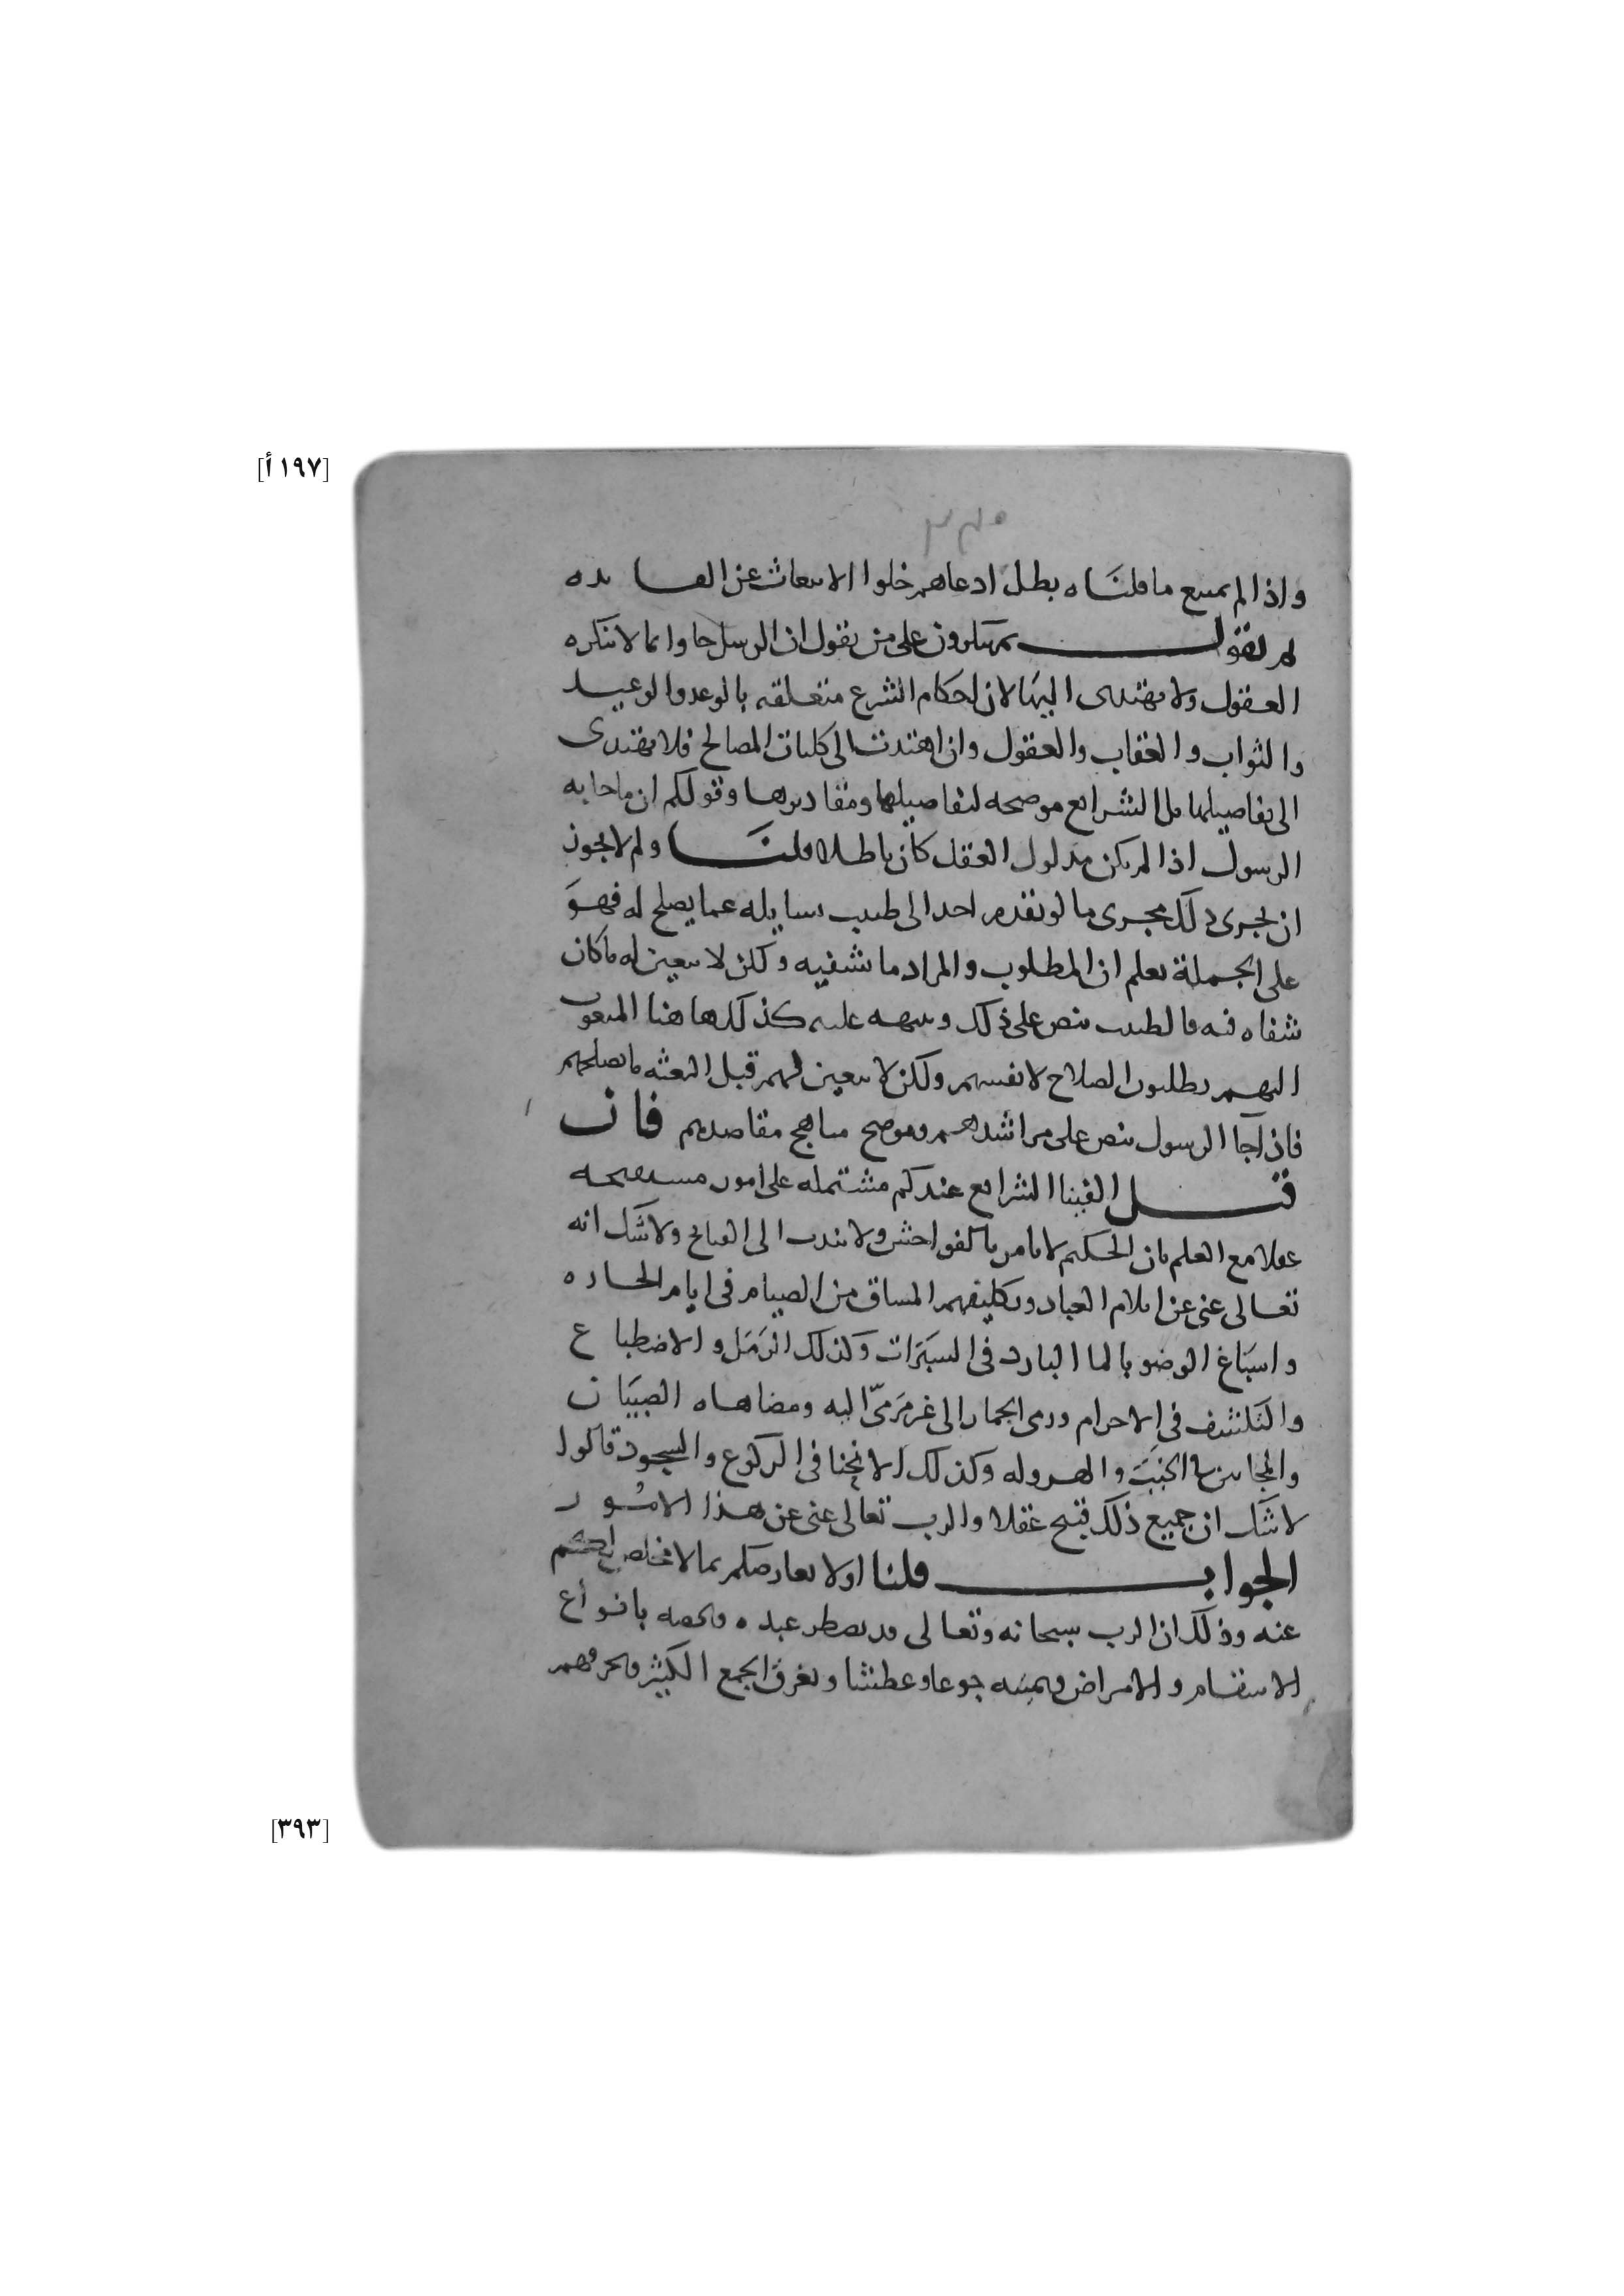 [١٩٧ أ]
واذا لم يمتنع ما قلناه بطل ادعاهم خلوا الابتعاث عن الفايده
ثم نقول بم تنكرون على من يقول ان الرسل جاوا بما لا تنكره
العقول ولا تهتدى اليها لان احكام الشرع متعلقه بالوعد والوعيد
والثواب والعقاب والعقول وان اهتدت الى كليات المصالح فلا تهتدى
الى تفاصيلها بل الشرايع موضحه لتفاصيلها ومقاديرها وقولكم ان ما جا به
الرسول اذا لم يكن مدلول العقل كان باطلا قلنا ولم لا يجوز
ان يجرى ذلك مجرى ما لو تقدم احد الى طبيب يسايله عما يصلح له فهو
على الجملة يعلم ان المطلوب والمراد ما يشفيه ولكن لا يتعين له ما كان
شفاه فيه فالطبيب ينص على ذلك وينبهه عليه كذلك هاهنا المبعوث
اليهم يطلبون الصلاح لانفسهم ولكن لا يتعين لهم قبل البعثه ما يصلحهم
فاذا جا الرسول ينص على مراشدهم ويوضح مناهج مقاصدهم فان
قيل الفينا الشرايع عندكم مشتمله على امور مستقبحه
عقلا مع العلم بان الحكيم لا يامر بالفواحش ولا يندب الى القبايح ولا شك انه
تعالى غنى عن ايلام العباد وتكليفهم المشاق من الصيام فى ايام الحاره
واسباغ الوضو بالما البارد فى السبرات وكذلك الرمل والاضطباع
والتكشف فى الاحرام ورمى الجمار الى غير مرمى اليه ومضاهاه الصبيان
والمجانين الخبب والهروله وكذلك الانحنا فى الركوع والسجود قالوا
لا شك ان جميع ذلك قبيح عقلا والرب تعالى غنى عن هذا الامور
الجواب قلنا اولا نعارضكم بما لا مخلص لكم
عنه وذلك ان الرب سبحانه وتعالى قد يضطر عبده ويخصه بانواع
الاسقام والامراض ويميته جوعا وعطشا ويغرق الجمع الكثير ويحرقهم
[٣٩٣]